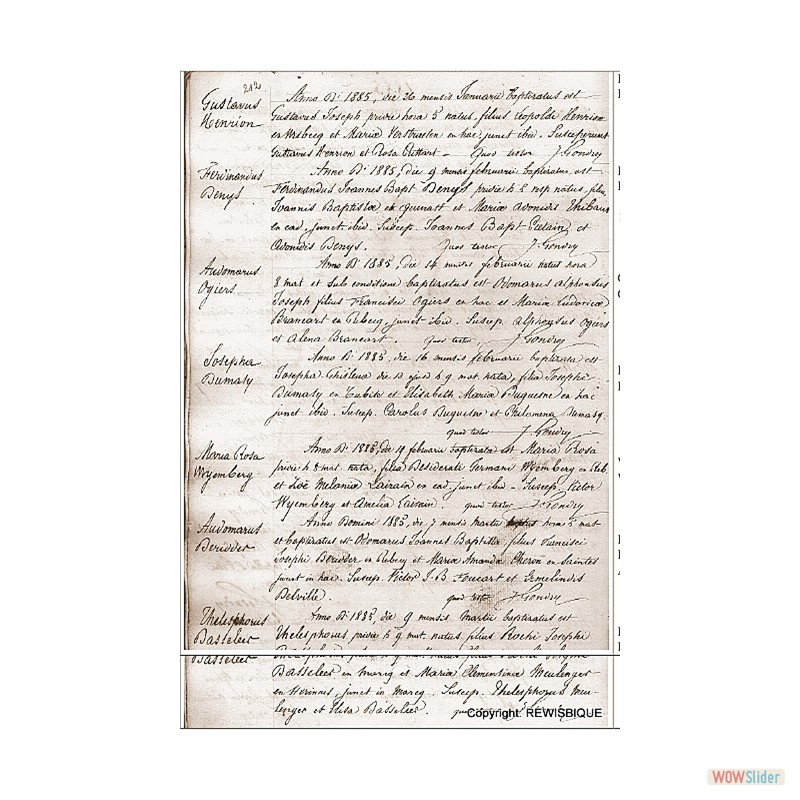 212
Gustavus
Henrion
Anno D. 1885, die 26 mensis Januarii baptizatus est
Gustavus Joseph pridie hora 5 natus, filius Leopoldi Henrion
en Wisbecq et Maria Verstraeten en hac, junct ibid. Susceperunt
Gustavus Henrion et Rosa quod testor J. Gondry
Ferdinandus
Denys
Anno D. 1885, die 9 mensis februarii baptizatus est
Ferdinandus Joannes Bapt Denys pridie h 5 natus, filius
Joannis Baptistæ ex quenast et Maria Adonidis Thibaut
en ead. junct ibid. Suscep. Joannes Bapt et
Adonidis Denys. quod testor J. Gondry
Audomarus
Ogiers
Anno D. 1885, die 14 mensis februarii natus hora
8 mat et sub conditione baptizatus est Odomarus alphonsus
Joseph filius Francisci Ogiers en hac et Maria Ludovica
Brancart en Rebecq, junct ibid. Suscep. alphonsus Ogiers
et Alena Brancart. quod testor J. Gondry
Josepha
Dumasy
Anno D. 1885 die 16 mensis februarii baptizata est
Josepha Ghislena die h 9 mat. nata, filia Josephi
Dumasy en Tubise et Elisabeth Maria Duquesne en hac
junct ibid. Suscep. Carolus Duquesne et Philomena Dumasy.
quod testor J. Gondry
Maria Rosa
Wyemberg
Anno D. 1885, die 19 februarii baptizata est Maria Rosa
pridie h 8 mat. nata, filia Desiderati Germani Wyemberg en
et Zoë Melania Lairain en ead. junct ibid - Suscep. Victor
Wyemberg et Amelia Lairain. quod testor J. Gondry
Audomarus
Deridder
Anno Domini 1885, die 7 mensis martii hora 5 mat
et baptizatus est Odomarus Joannes Baptista filius Francisci
Josephi Deridder en Rebecq et Maria Amanda Cheron en Saintes
junct in hac. Suscep. Victor J-B. Foucart et Ermelindis
Delville. quod testor J. Gondry
Thelesphorus
Basseleer
Anno D. 1885, die 9 mensis Martii baptizatus est
Thelesphorus pridie h 9 mat. natus filius Rochi Josephi
Basseleer
Basseleer en marcq et Maria Clementina Meulenger
en Herinnes, junct in marcq. Suscep. Thelesphorus Meu-
lenger et Elisa Basseleer.
Copyright: REWISBIQUE
WOWSlider